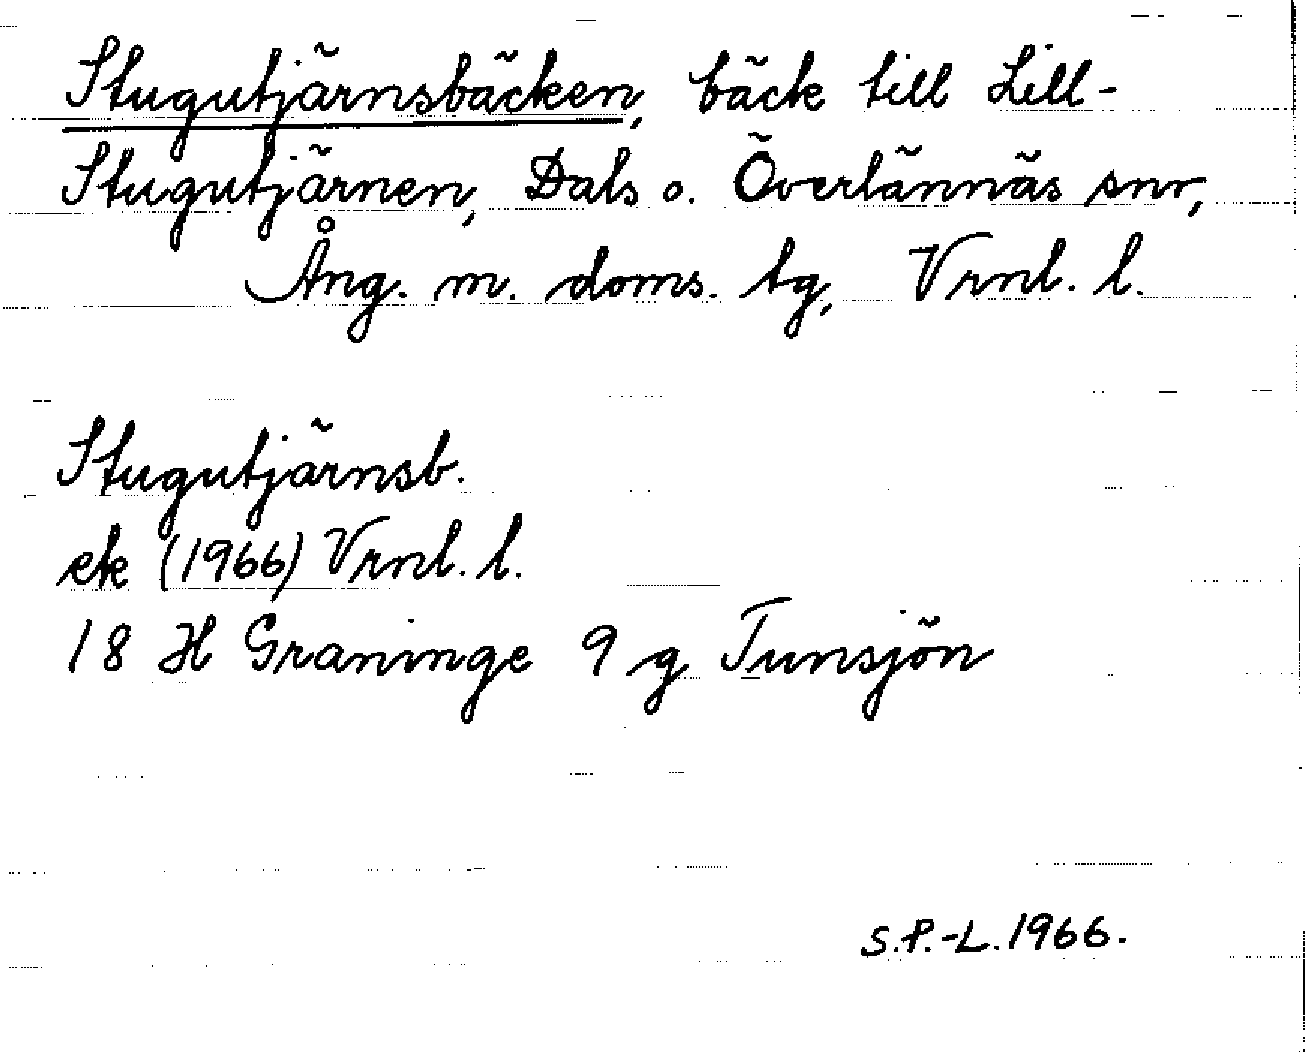 Stugutjärnsbäcken, bäck till Lill-
Stugutjärnen, Dals o. Överlännäs snr,
Ång. m. doms. tg, Vrnl. l.
Stugutjärnsb.
ek (1966) Vrnl. l.
18 H Graninge 9 g Tunsjön
S.P.-L. 1966.